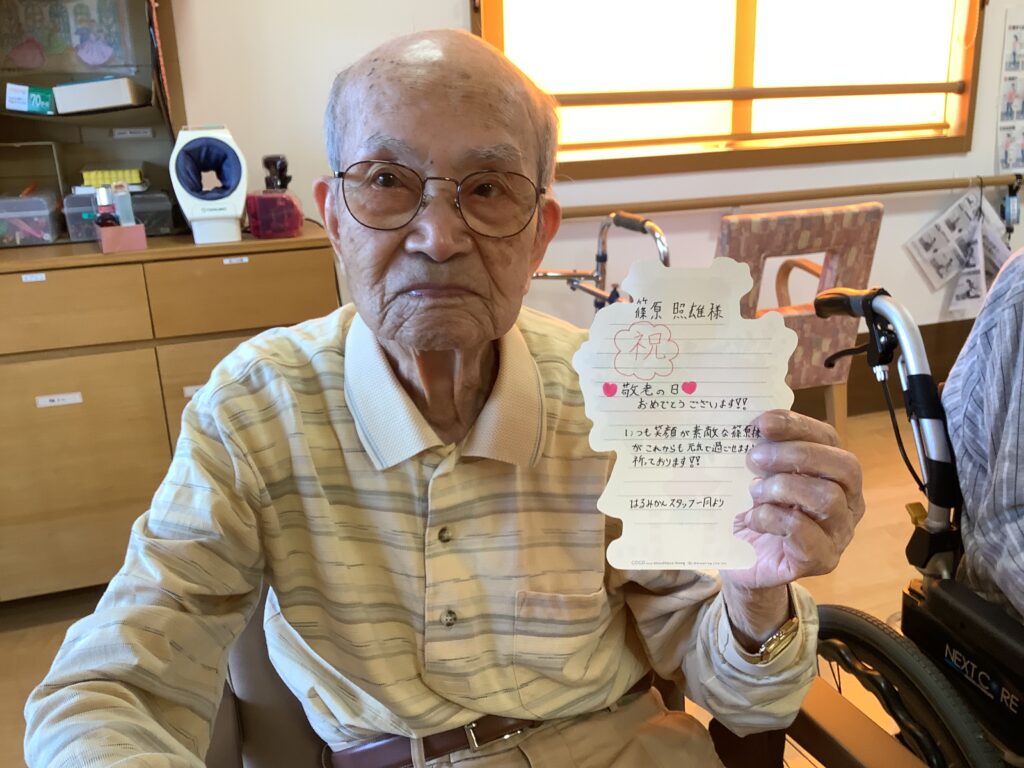 篠原 照雄様
祝
敬老の日
おめでとうございます!!
いつも笑顔が素敵な篠原様
がこれからも元気で過ごせます
祈っております!!
はるみかんスタッフ一同より
NEXT CORE
70